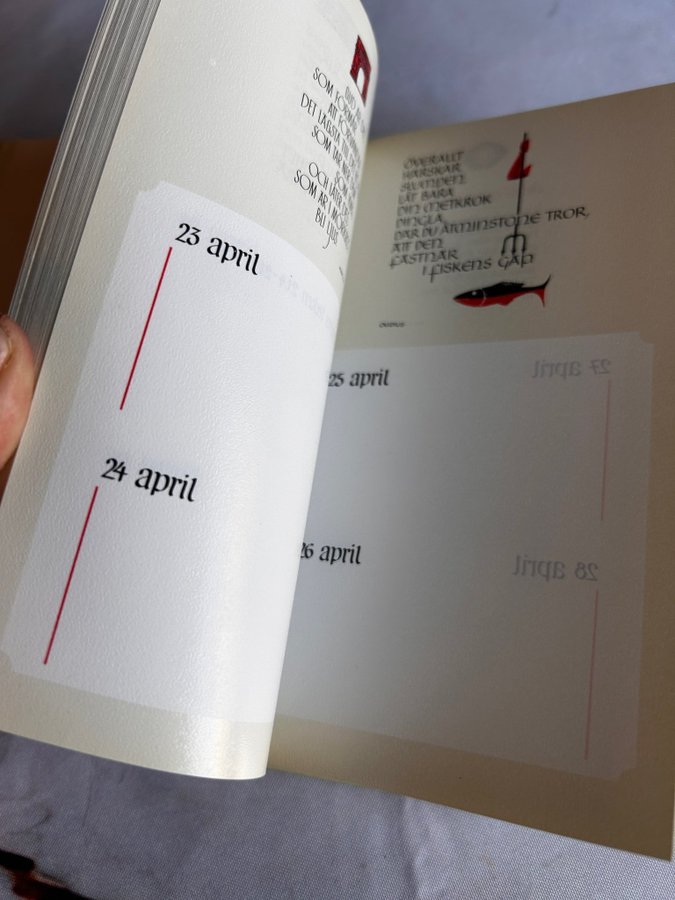 SOM
ATT
DET
SOM
OCH
SOM
BLI LJUS
23 april
24 april
ÖVERALLT
HÄRSKAR
SLUMPEN.
LÅT BARA
DIN METKROK
DINGLA.
DÄR DU ÅTMINSTONE TROR,
ATT DEN
FASTNAR
I FISKENS GAP
OVIDIUS
25 april
26 april
27 april
28 april